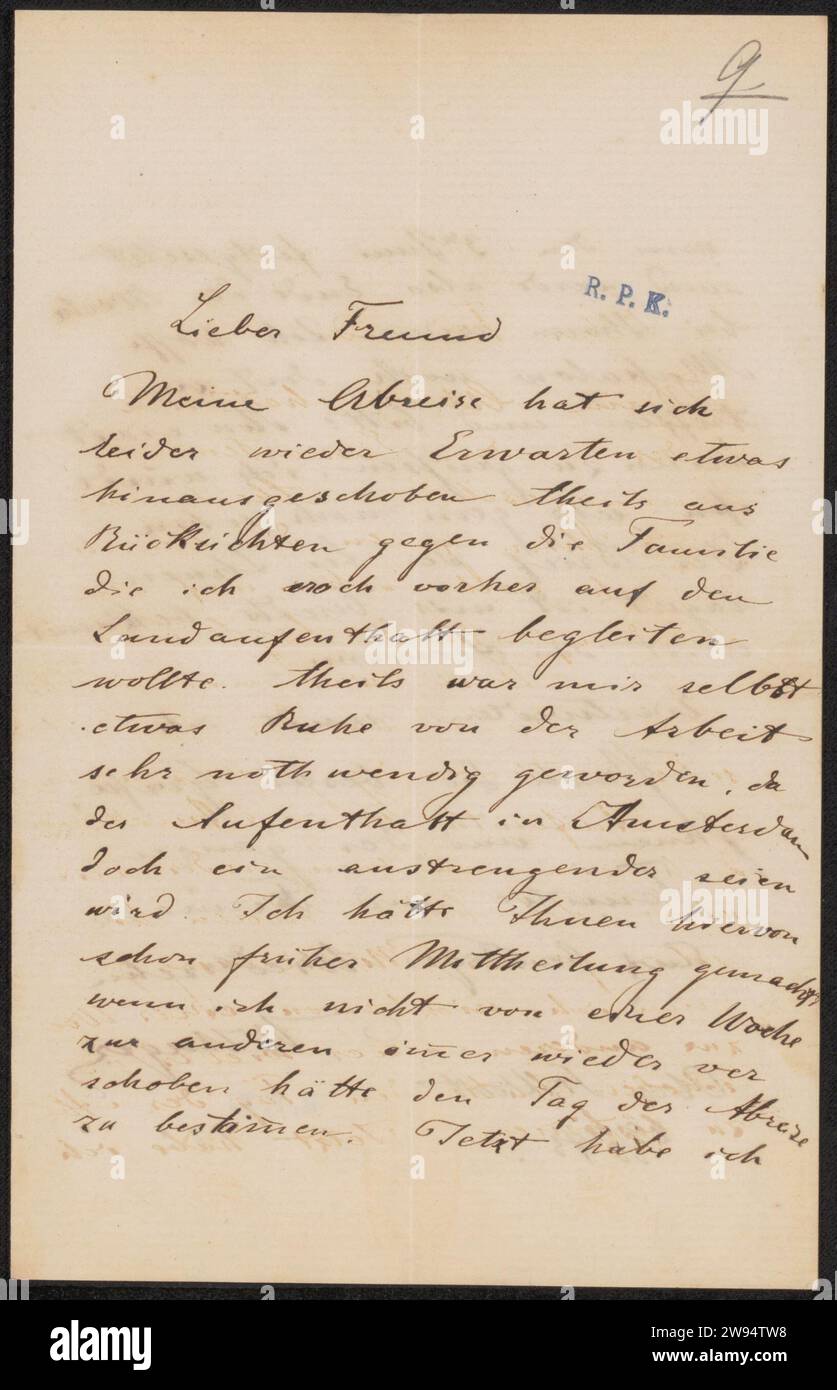 9
R. P. K.
Lieber Freund
Meine Abreise hat sich
leider wieder Erwarten etwas
hinausgeschoben theils aus
Rücksichten gegen die Familie
die ich noch vorher auf den
Landaufenthalt begleiten
wollte. theils war mir selbst
etwas Ruhe von der Arbeit
sehr nothwendig geworden, da
der Aufenthalt in Amsterdam
doch ein anstrengender seien
wird. Ich hätte Ihnen hiervon
schon früher Mittheilung gemacht
wenn ich nicht von einer Woche
zur anderen im̄er wieder ver
schoben hätte den Tag der Abreise
zu bestim̄en. Jetzt habe ich
alamy
Image ID: 2W94TW8
www.alamy.com